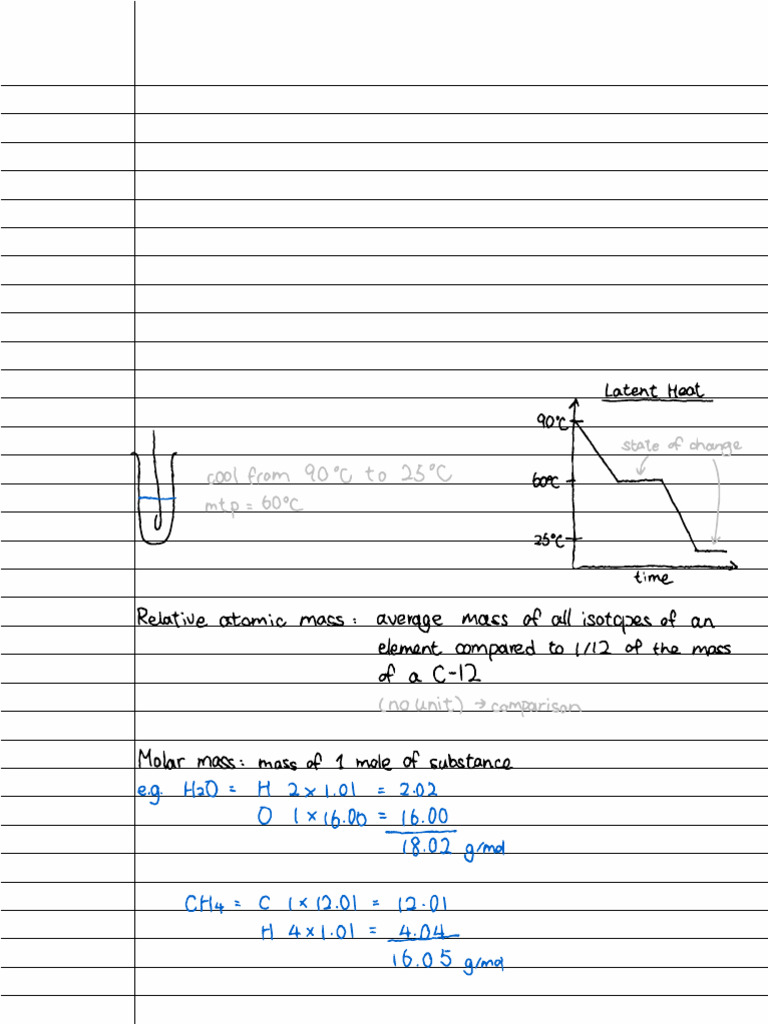 Latent Heat
90°C
state of change
cool from 90°C to 25°C
60°C
mtp = 60°C
25°C
time
Relative atomic mass: average mass of all isotopes of an
element compared to 1/12 of the mass
of a C-12
(no unit) → comparison
Molar mass: mass of 1 mole of substance
e.g. H2O = H 2 × 1.01 = 2.02
O 1 × 16.00 = 16.00
18.02 g/mol
CH4 = C 1 × 12.01 = 12.01
H 4 × 1.01 = 4.04
16.05 g/mol